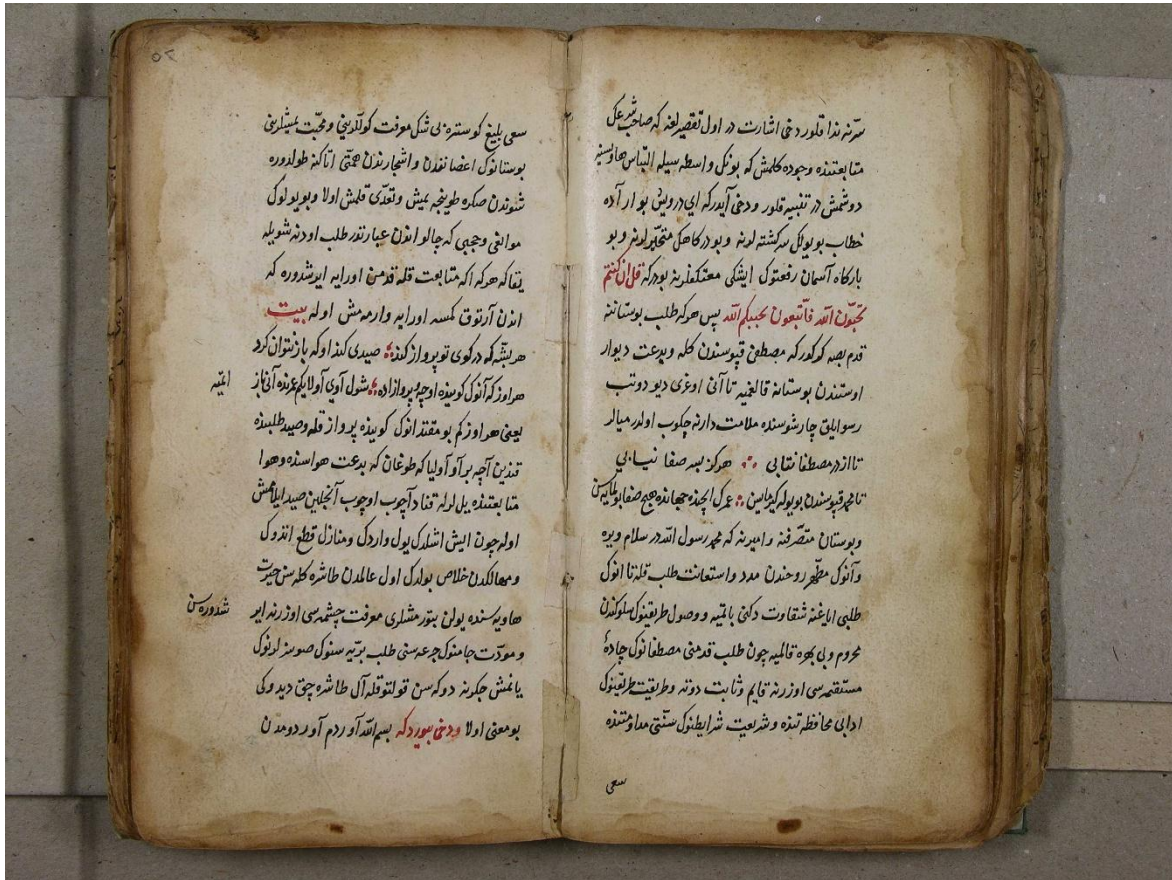 سرّنه ندا قلور دخی اشارت در اول تقصیر لغنه که صاحب شرعك
متابعتنده وجوده کلمش که بونك واسطه سیله التباس هاویسنه
دوشمش در تنبیه قلور ودخی آیدرکه ای درویش بو ار آده
خطاب بو یولك سرکشته لرنه وبو درکاهك متحیّرلرنه وبو
بارکاه آسمان رفعتوك ایشکی معتکفلرنه بودرکه قل ان کنتم
تحبّون الله فاتّبعون یحببکم الله پس هرکه طلب بوستاننه
قدم بصه کرکدرکه مصطفی قپوسندن کله وبدعت دیوار
اوستندن بوستانه قالغمیه تا آنی اوغری دیو دوتب
رسوایلق چارشوسنده ملامت دارنه چکوب اولدرمیالر
تا از در مصطفا نقابی هرکز بسر صفا نیابی
تا محمد قپوسندن بو یوله کیرمایسن عمرك اچنده جهانده هیچ صفا بولمایسن
وبوستان متصرّفنه وامیرنه که محمد رسول الله در سلام ویره
وآنوك مطهّر روحندن مدد واستعانت طلب قله تا انوك
طلبی ایاغنه شقاوت دکنی باتمیه ووصول طریقینوك سلوکندن
محروم وبی بهره قالمیه چون طلب قدمنی مصطفانوك جادۀ
مستقیمه سی اوزرنه قایم وثابت دوته وطریقت طریقینوك
ادابی محافظه تنده وشریعت شرایطنوك سنّتی مداومتنده
سعی
سعی بلیغ کوستره بی شك معرفت کوللرینی ومحبّت یمیشلرینی
بوستانوك اغصانندن واشجارندن همّتی اتاکنه طولدوره
شوندن صکره طوینجه یمیش وتغدّی قلمش اولا وبو یولوك
موانعی وحجبی که چالو اندن عبارتدر طلب اودنه شویله
یقاکه هرکه اکه متابعت قله قدمن اورایه ایرشدوره که
اندن آرتوق کمسه اورایه وارمه مش اوله بیت
هر پشّه که در کوی تو پرواز کند صیدی کند او که باز نتوان کرد
هر اوزکه آنوك کوینده اوچه پرواز اده شول آوی آولایکم عرنده آنی باز
ایتمیه
یعنی هر اوز کم بو مقتدانوك کوینده پرواز قله وصید طلبنده
قندین آچه بر آو آولیا که طوغان که بدعت هواسنده وهوا
متابعتنده یل لرله قناد آچوب اوچوب آنجلین صید ایلامش
اوله چون ایش اشلدك یول واردك ومنازل قطع اتدوك
ومهالکدن خلاص بولدك اول عالمدن طاشره کله سن حیرت
هاویه سنده یولن یتورمشلری معرفت چشمه سی اوزرنه ایر
شدوره سن
ومودّت جامنوك جرعه سنی طلب برّیه سنوك صوسزلرنوك
یانمش جکرنه دوکه سن قولتوقله آل طاشره چق دیدوکی
بو معنی اولا ودخی بیوردکه بسم الله آوردم آوردومدن